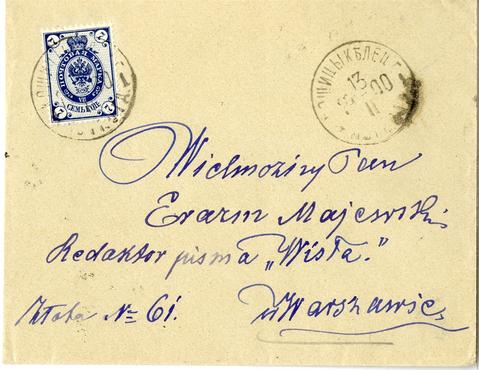 7 7
ПОЧТОВАЯ МАРКА
СЕМЬ КОП.
7 7
КОШИЦЫ КѢЛЕЦ. Г.
13
II
00
Wielmożny Pan
Erazm Majewski
Redaktor pisma „Wisła."
Złota № 61.
w Warszawie